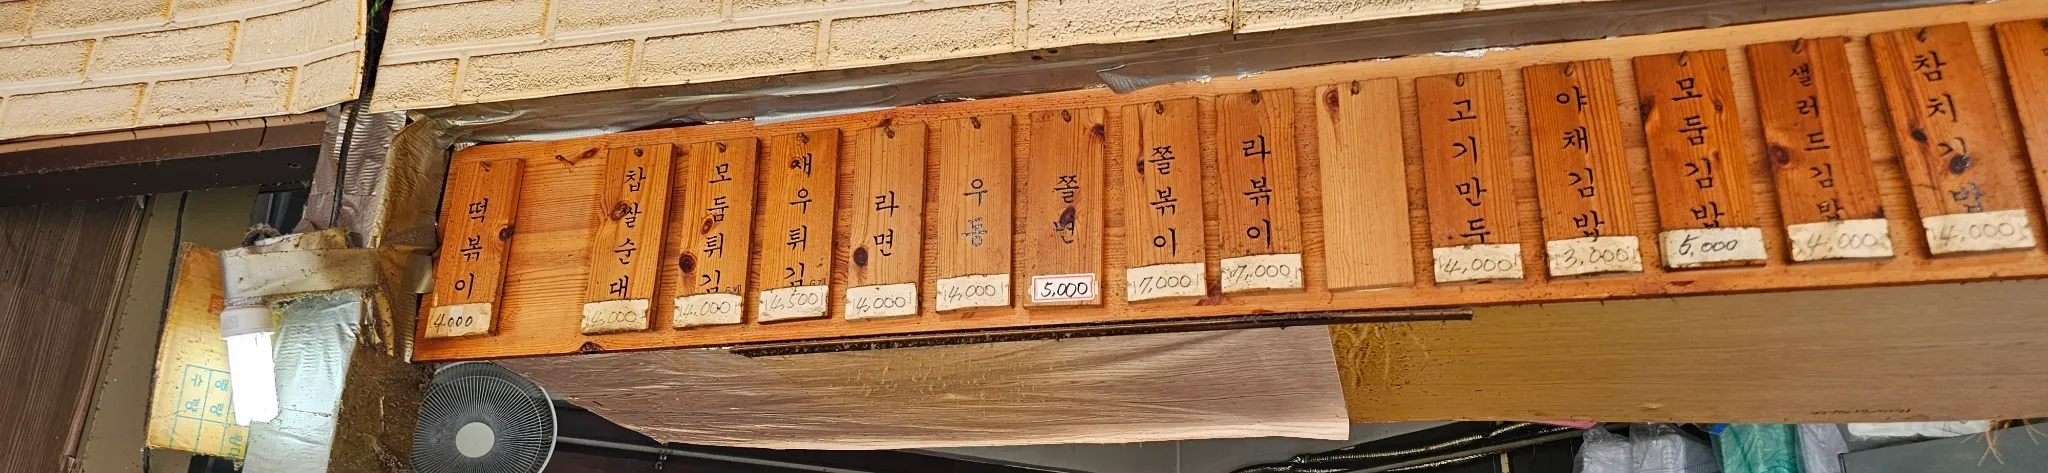 떡볶이
4.000
찹쌀순대
4,000
모둠튀김
4,000
새우튀김
4,500
라면
4,000
우동
4,000
쫄면
5,000
쫄볶이
7,000
라볶이
7,000
고기만두
4,000
야채김밥
3,000
모둠김밥
5,000
샐러드김밥
4,000
참치김밥
4,000
중량
수량